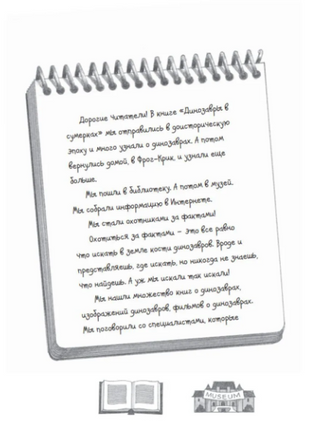 Дорогие Читатели! В книге «Динозавры в
сумерках» мы отправились в доисторическую
эпоху и много узнали о динозаврах. А потом
вернулись домой, в Фрог-Крик, и узнали еще
больше.
Мы пошли в библиотеку. А потом в музей.
Мы собрали информацию в Интернете.
Мы стали охотниками за фактами!
Охотиться за фактами – это все равно
что искать в земле кости динозавров. Вроде и
представляешь, где искать, но никогда не знаешь,
что найдешь. А уж мы искали так искали!
Мы нашли множество книг о динозаврах,
изображений динозавров, фильмов о динозаврах.
Мы поговорили со специалистами, которые
MUSEUM